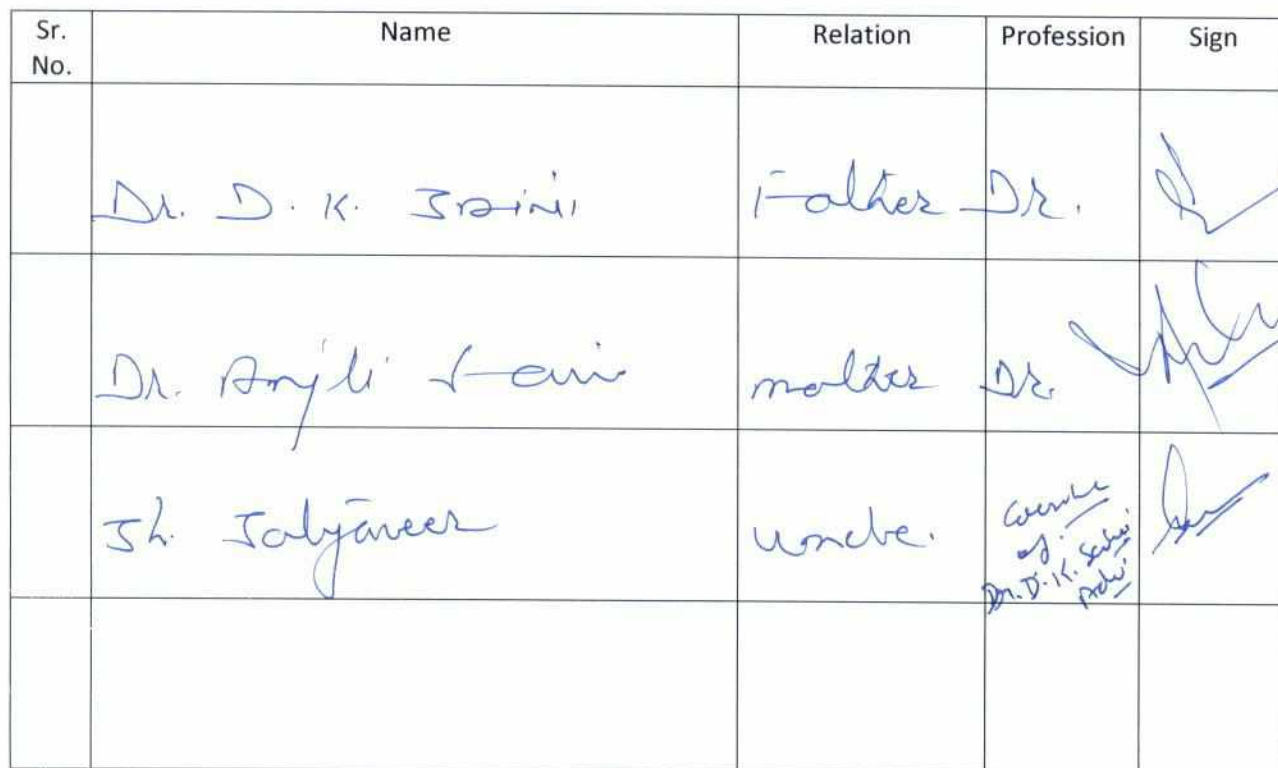 Sr. No. Name Relation Profession Sign
Dr. D. K. Saini Father Dr.
Dr. Anjli Saini mother Dr.
Sh. Satyaveer Uncle.
of
Dr. D. K. Saini